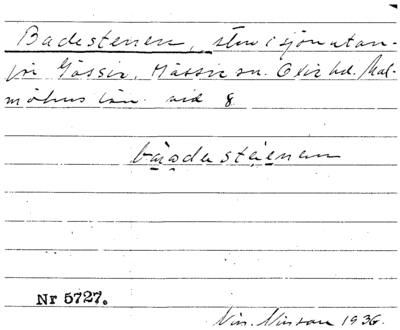 Badestenen, sten i sjön utan-
för Gässie, Mässie sn. Oxie hd. Mal-
möhus län. sid 8
bàadestèienen
Nr 5727.
Nils Nilsson 1936.